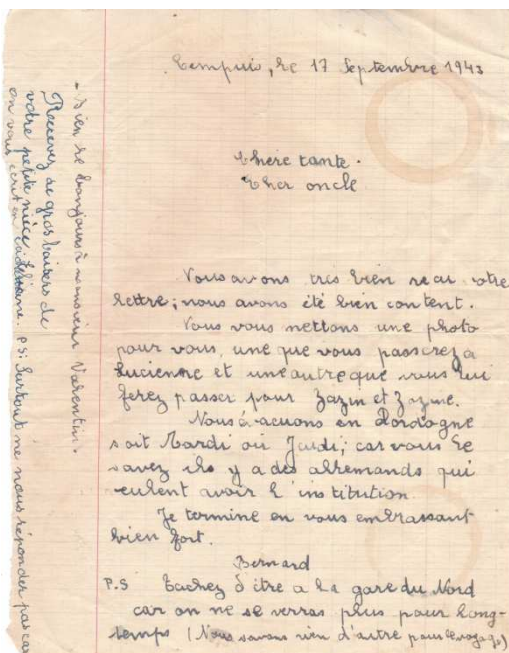 Cempuis, le 17 Septembre 1943
Chère tante.
Cher oncle
Nous avons tres bien recu votre
lettre; nous avons été bien content.
Nous vous mettons une photo
pour vous, une que vous passerez a
Lucienne et une autre que vous lui
ferez passer pour Zazin et Zazine.
Nous évacuons en Dordogne
soit Mardi ou Jeudi; car vous le
savez ils y a des allemands qui
veulent avoir l'institution.
Je termine en vous embrassant
bien fort.
Bernard
P.S Tachez d'être a la gare du Nord
car on ne se verras plus pour long-
temps (Nous savons rien d'autre pour le voyage)
- Bien le bonjours à monsieur Varentin.
Recevez de gros baisers de
votre petite nièce
on vous écrit PS: Surtout ne nous réponder pas car